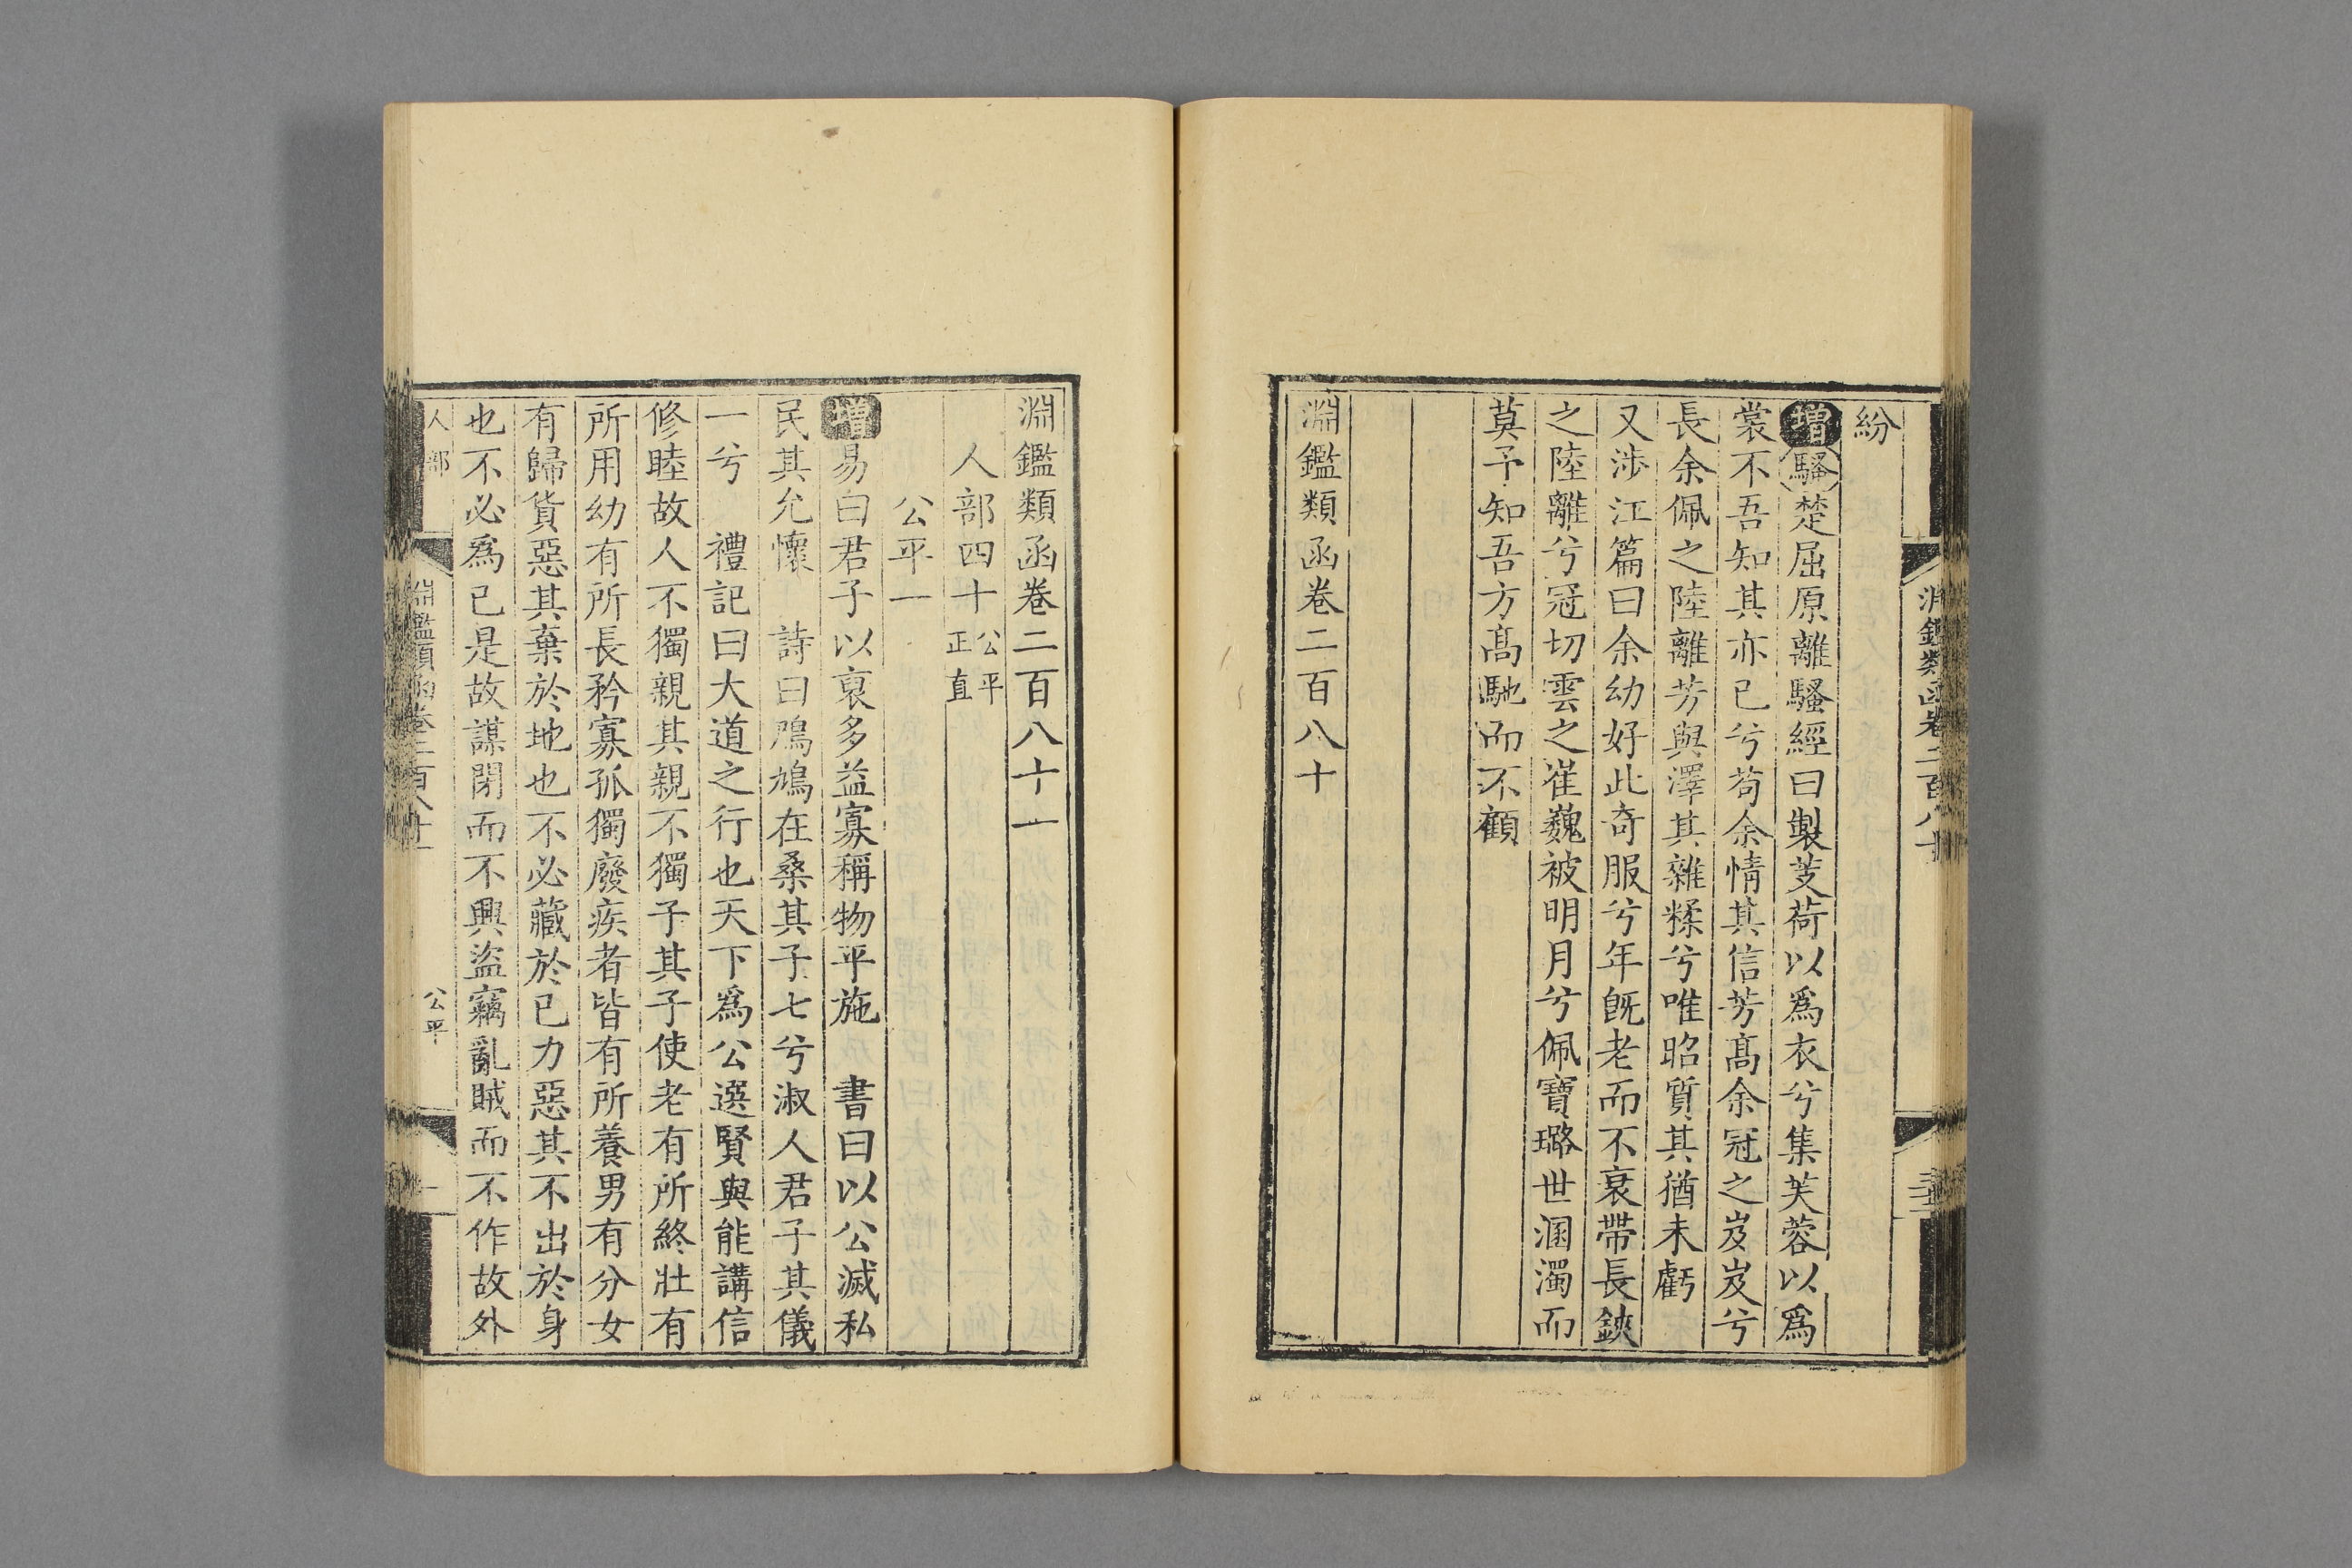 紛
增騷楚屈原離騷經曰製芰荷以爲衣兮集芙蓉以爲
裳不吾知其亦已兮苟余情其信芳髙余冠之岌岌兮
長余佩之陸離芳與澤其雜糅兮唯昭質其猶未虧
又涉江篇曰余幼好此奇服兮年旣老而不衰帶長鋏
之陸離兮冠切雲之崔巍被明月兮佩寶璐世溷濁而
莫予知吾方髙馳而不顧
淵鑑類函卷二百八十
淵鑑類函卷二百八十
淵鑑類函卷二百八十一
人部四十公平正直
公平一
增易曰君子以裒多益寡稱物平施　書曰以公滅私
民其允懷　詩曰鳲鳩在桑其子七兮淑人君子其儀
一兮　禮記曰大道之行也天下爲公選賢與能講信
修睦故人不獨親其親不獨子其子使老有所終壯有
所用幼有所長矜寡孤獨廢疾者皆有所養男有分女
有歸貨惡其棄於地也不必藏於已力惡其不出於身
也不必爲已是故謀閉而不興盜竊亂賊而不作故外
人部
淵鑑類函卷二百八十一
公平
一